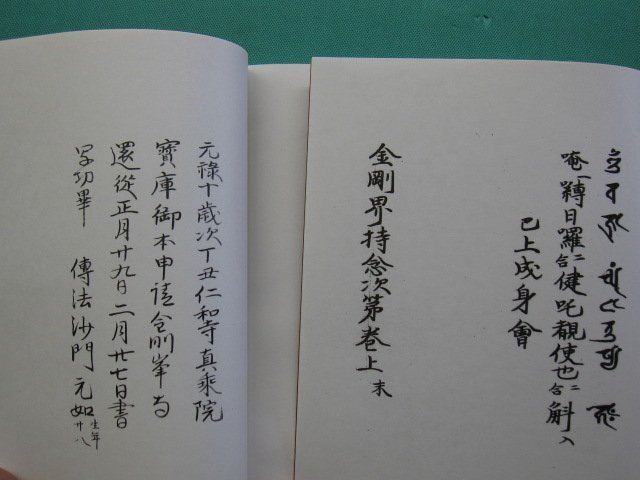 唵一韈日囉二合健吒覩使也二合斛入
已上成身會
金剛界持念次第卷上末
元祿十歲次丁丑仁和寺真乘院
寳庫御本申請金剛峯寺
還從正月廿九日二月廿七日書
写功畢 傳法沙門元如生年廿八